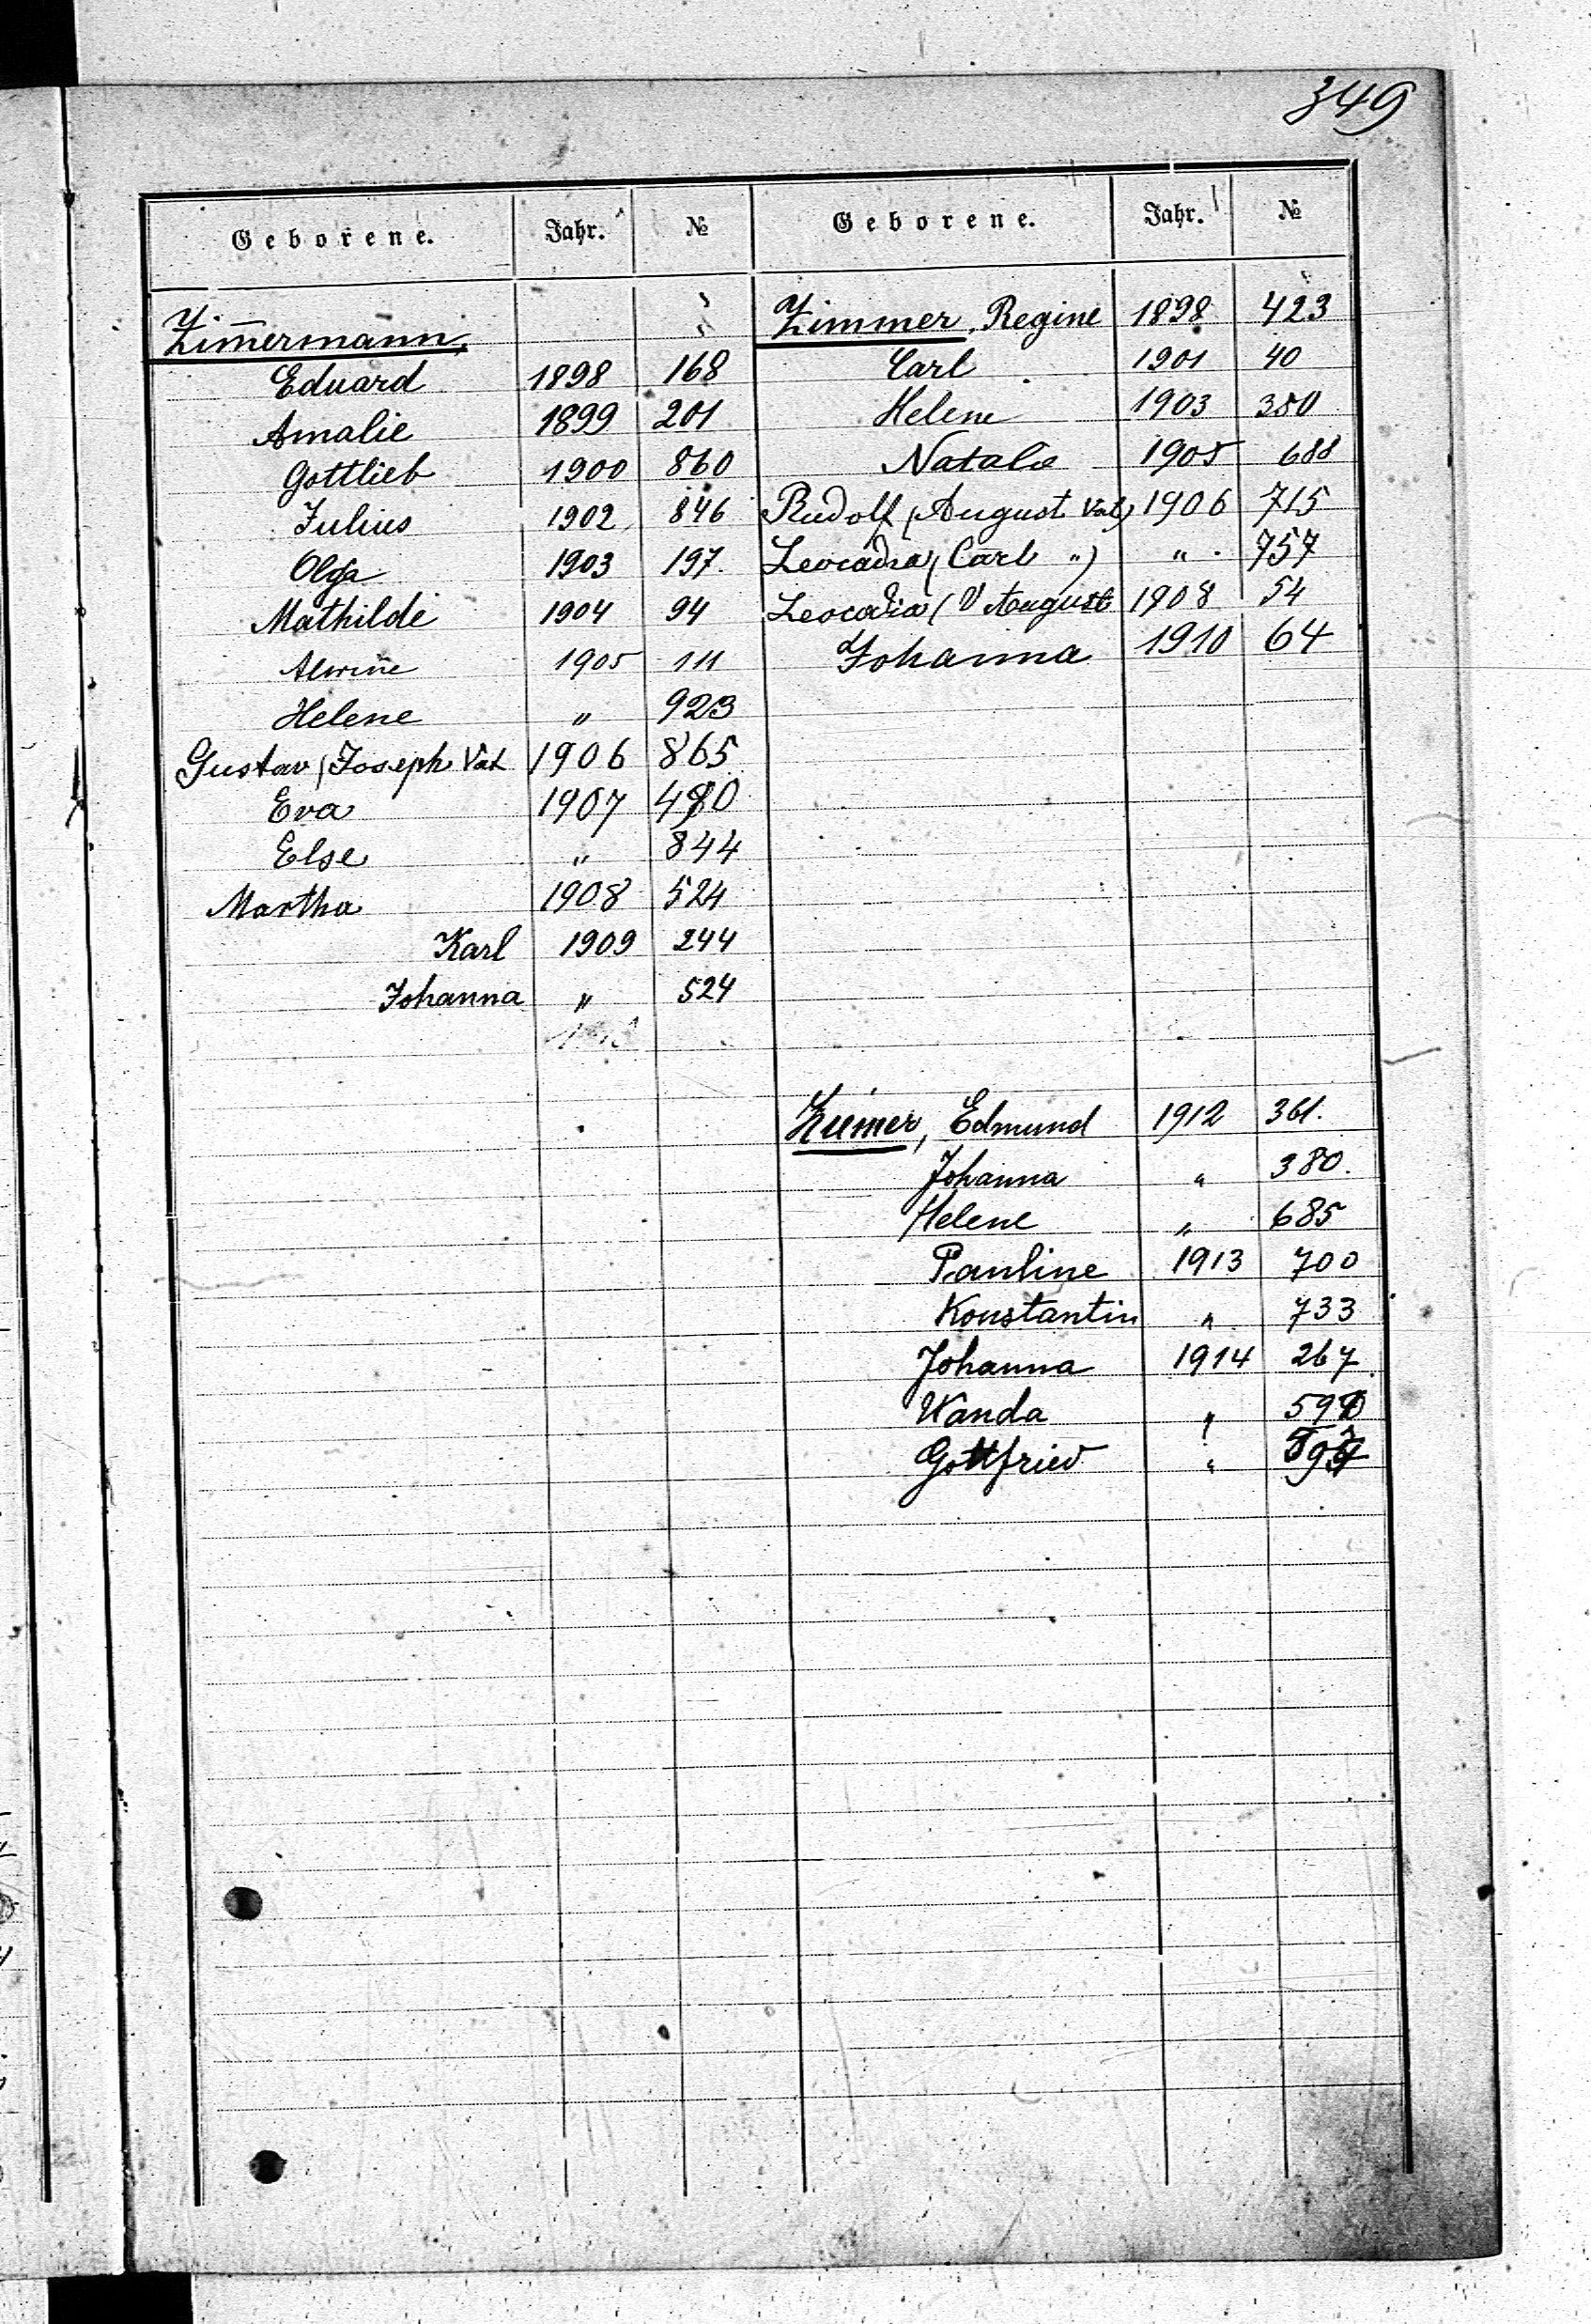 349
Geborene. Jahr. №
Zim̅ermann,
Eduard 1898 168
Amalie 1899 201
Gottlieb 1900 860
Julius 1902 846
Olga 1903 197.
Mathilde 1904 94
Alwine 1905 111
Helene " 923
Gustav (Joseph Vat 1906 865
Eva 1907 480
Else " 844
Martha 1908 524
Karl 1909 244
Johanna " 524
Geborene. Jahr. №
Zimmer, Regine 1898 423
Carl 1901 40
Helene 1903 350
Natalie 1905 688
Rudolf (August Vat) 1906 715
Leocadia (Carl ") " 757
Leocadia (V August 1908 54
Johanna 1910 64
Zim̅er, Edmund 1912 361.
Johanna " 380.
Helene " 685
Pauline 1913 700
Konstantin " 733
Johanna 1914 267
Wanda "
Gottfried "